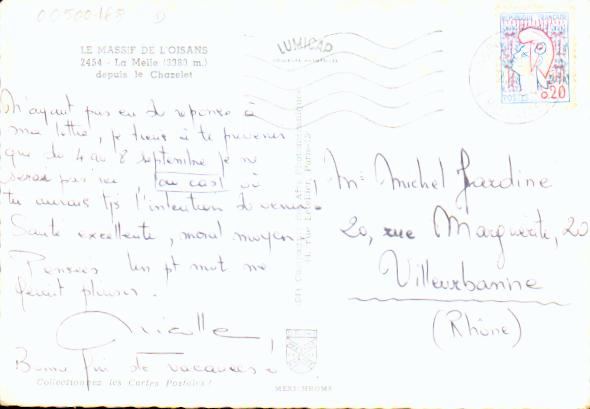 00500165
LE MASSIF DE L'OISANS
2454 - La Meije (3983 m.)
depuis le Chazelet
LUMICAP
REPUBLIQUE FRANÇAISE
POSTES 0,20
N'ayant pas eu de réponse à
ma lettre, je tiens à te prévenir
que du 4 au 8 septembre je ne
serai pas ici, (au cas) où
tu aurais tjs l'intention de venir!
Santé excellente, moral moyen.
Pensées Un pt mot me
ferait plaisir.
Bonne fin de vacances
Collectionnez les Cartes Postales !
MEXICHROME
Mr Michel Jardiné
20, rue Marguerite, 20
Villeurbanne
(Rhône)